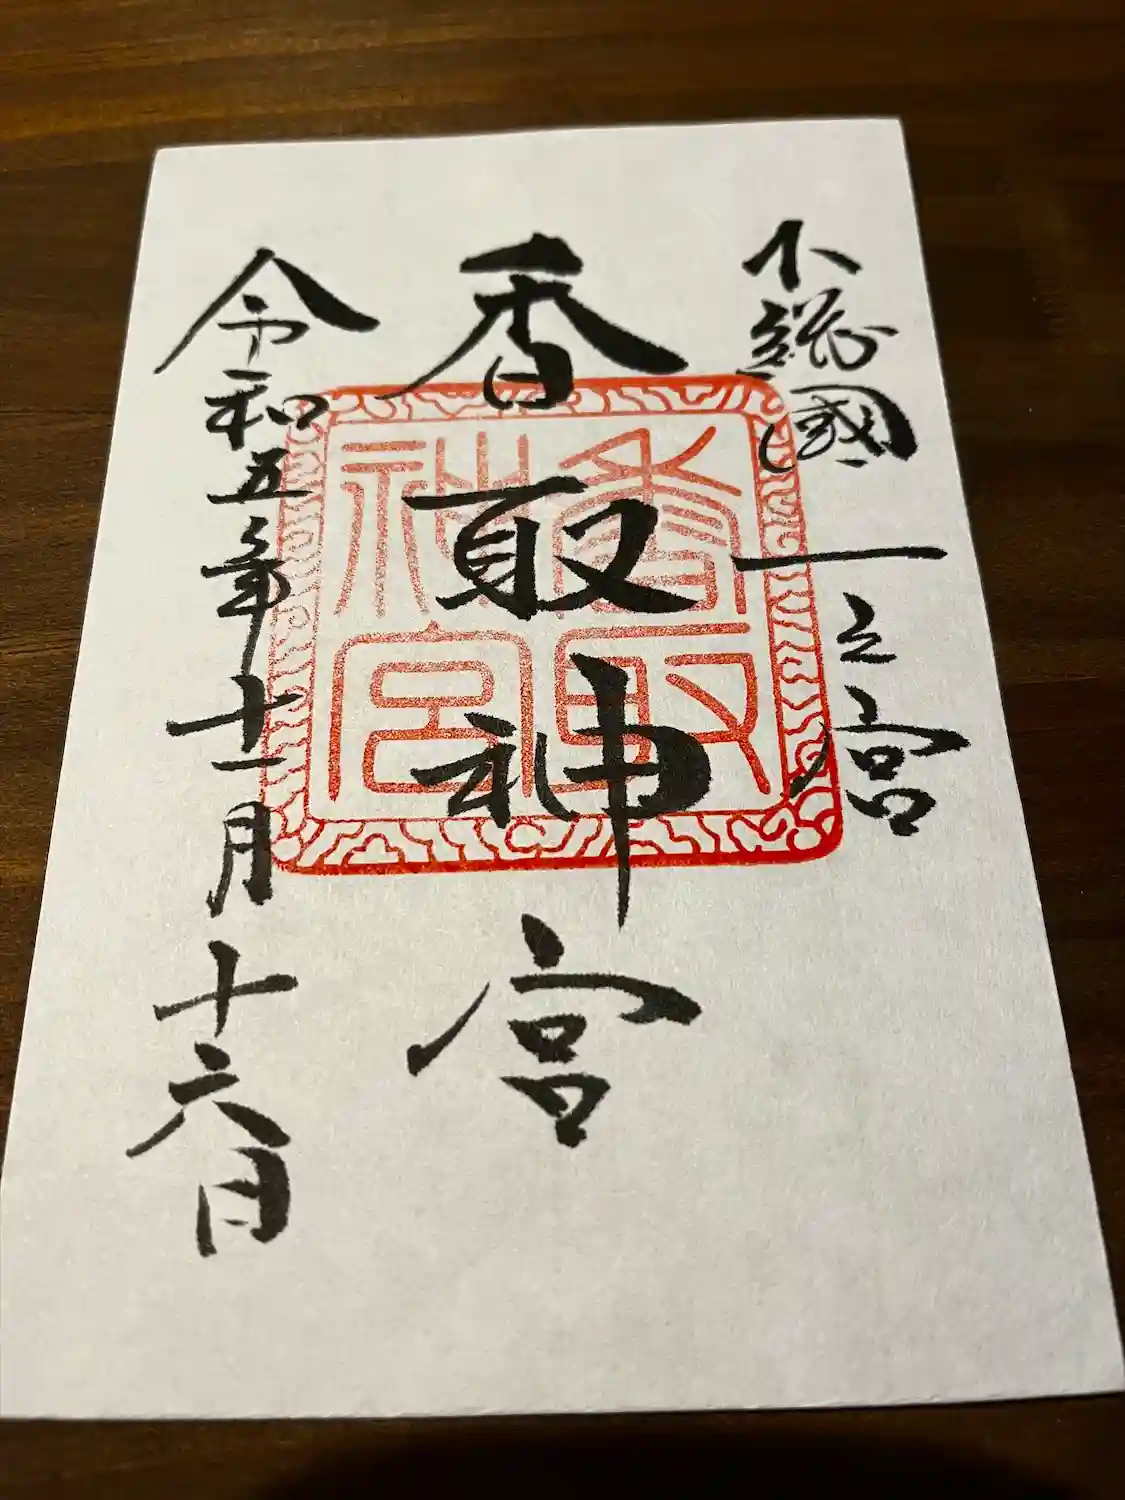 下総國一之宮
香取神宮
香取神宮
令和五年十一月十六日